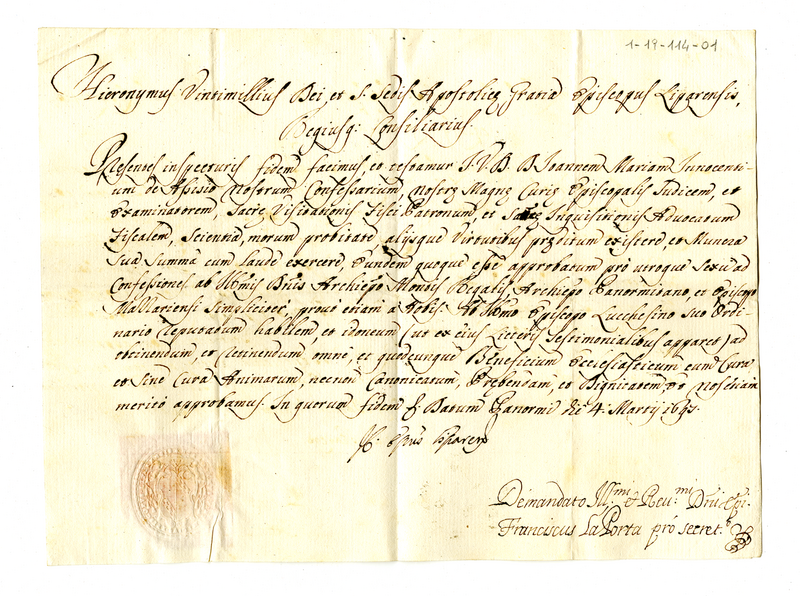 1-19-114-01
Hieronymus Vintimillius Dei, et S. Sedis Apostolicę Gratia Episcopus Liparensis,
Regiusq; Consiliarius.
Presentes inspecturis fidem facimus, et testamur I. V. D. D. Ioannem Mariam Innocenti-
um de Asisio Nostrum Confessarium Nostrę Magnę Curię Episcopalis Iudicem, et
Examinatorem, Sacrę Visitationis Fisci Patronum, et Inquisitionis Advocatum
Fiscalem, Scientia, morum probitate alijsque Virtutibus pręditum existere, et Munera
Sua Summa cum laude exercere, Eundem quoque esse approbatum pro utroque Sexu ad
Confessiones ab Archiepo Montis Regalis, Archiepo Panormitano, et Episcopo
Mazzariensi Simpliciter, prout etiam a Nobis. Ab Episcopo Lucchesino suo Ordi-
nario Reputatum habilem, et idoneum (ut ex eius Literis Testimonialibus apparet) ad
obtinendum, et Retinendum omne, et quodcunque Beneficium Ecclesiasticum cum Cura
et Sine Cura Animarum, necnon Canonicatum, Prębendam, et Dignitatem,
merito approbamus. In quorum fidem Datum Panormi die 4. Martij
Epus Liparen
Demandato Ill.mi et Reu.mi Dni Epi.
Franciscus La Porta pro secret.o